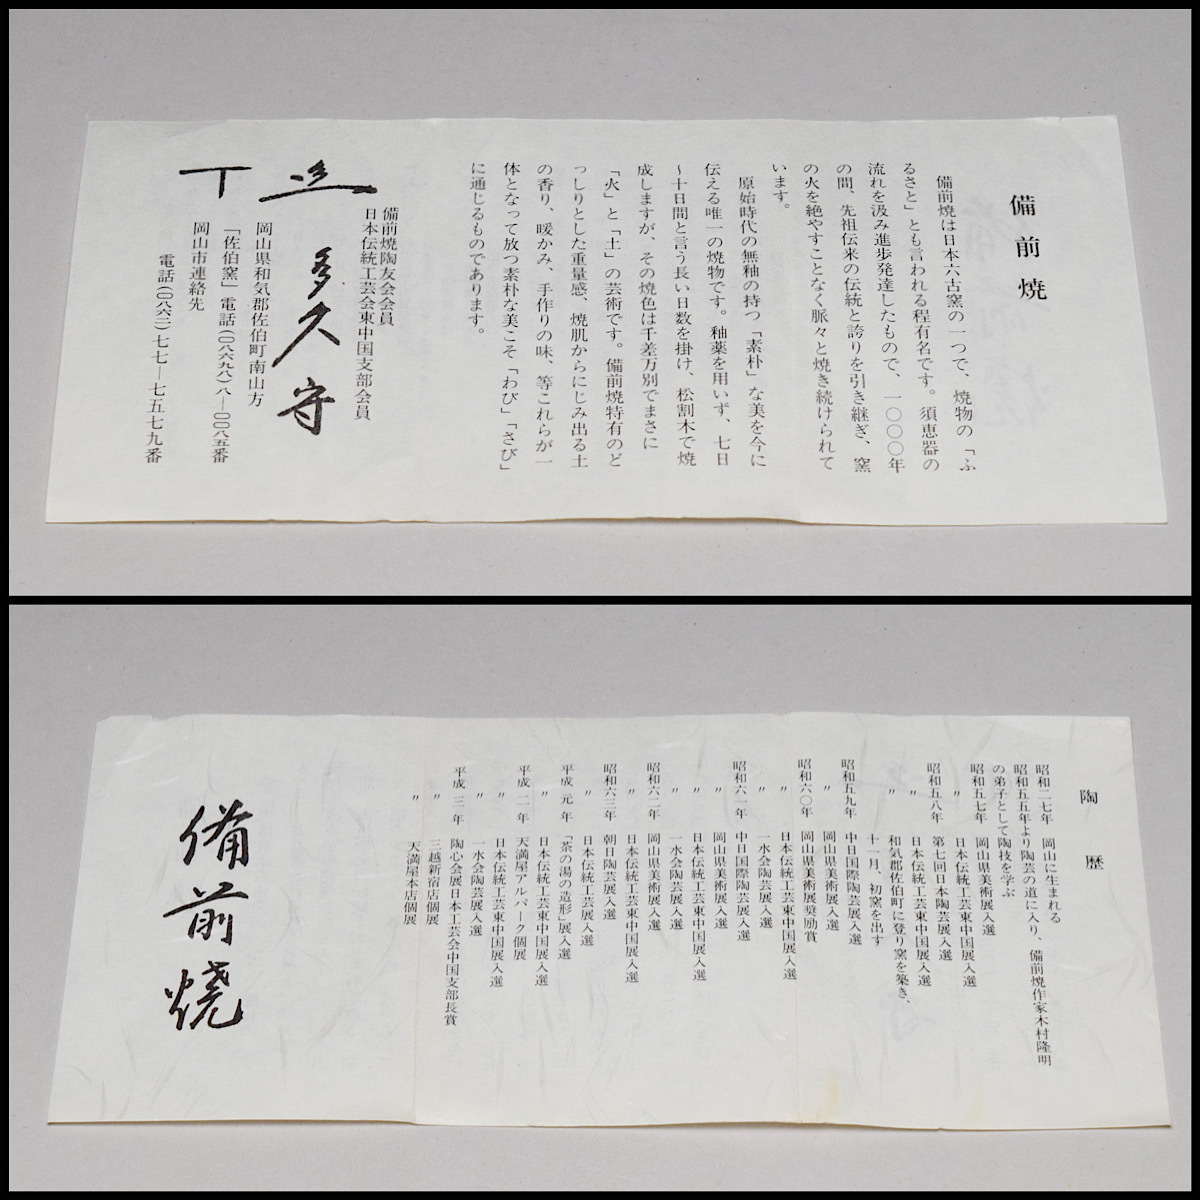 備前焼
備前焼は日本六古窯の一つで、焼物の「ふ
るさと」とも言われる程有名です。須恵器の
流れを汲み進歩発達したもので、一〇〇〇年
の間、先祖伝来の伝統と誇りを引き継ぎ、窯
の火を絶やすことなく脈々と焼き続けられて
います。
原始時代の無釉の持つ「素朴」な美を今に
伝える唯一の焼物です。釉薬を用いず、七日
〜十日間と言う長い日数を掛け、松割木で焼
成しますが、その焼色は千差万別でまさに
「火」と「土」の芸術です。備前焼特有のど
っしりとした重量感、焼肌からにじみ出る土
の香り、暖かみ、手作りの味、等これらが一
体となって放つ素朴な美こそ「わび」「さび」
に通じるものであります。
備前焼陶友会会員
日本伝統工芸会東中国支部会員
多久守
岡山県和気郡佐伯町南山方
「佐伯窯」電話(〇八六九八)八—〇〇八五番
岡山市連絡先
電話(〇八六二)七七—七五七九番
陶歴
昭和二七年 岡山に生まれる
昭和五五年より陶芸の道に入り、備前焼作家木村隆明
の弟子として陶技を学ぶ
昭和五七年 岡山県美術展入選
〃 日本伝統工芸東中国展入選
昭和五八年 第七回日本陶芸展入選
〃 日本伝統工芸東中国展入選
〃 和気郡佐伯町に登り窯を築き、
十一月、初窯を出す
昭和五九年 中日国際陶芸展入選
〃 岡山県美術展入選
昭和六〇年 岡山県美術展奨励賞
〃 日本伝統工芸東中国展入選
〃 一水会陶芸展入選
昭和六一年 中日国際陶芸展入選
〃 岡山県美術展入選
〃 日本伝統工芸東中国展入選
〃 一水会陶芸展入選
昭和六二年 岡山県美術展入選
〃 日本伝統工芸東中国展入選
昭和六三年 朝日陶芸展入選
〃 日本伝統工芸展入選
平成元年 「茶の湯の造形」展入選
〃 日本伝統工芸東中国展入選
平成二年 天満屋アルパーク個展
〃 日本伝統工芸東中国展入選
〃 一水会陶芸展入選
平成三年 陶心会展日本工芸会中国支部長賞
〃 三越新宿店個展
〃 天満屋本店個展
備前焼